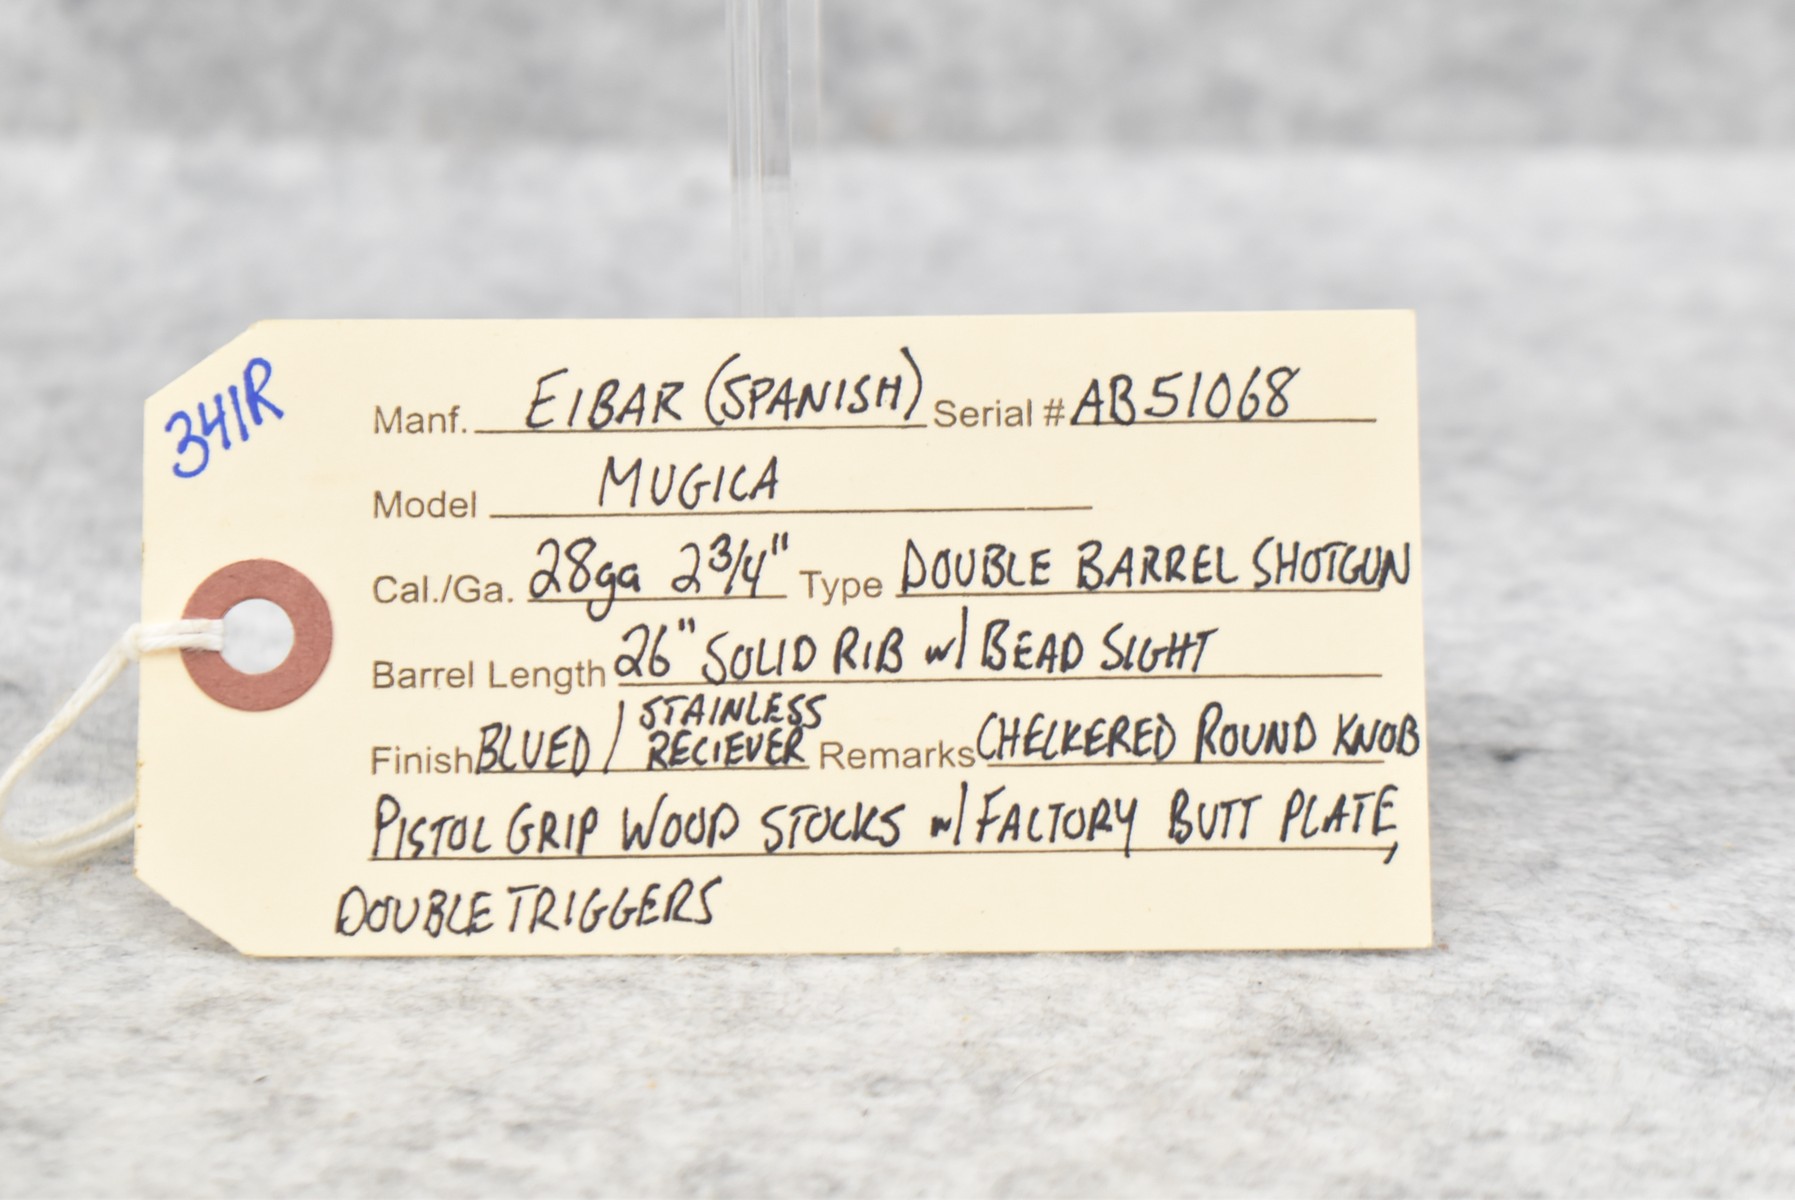 341R
Manf. EIBAR (SPANISH) Serial # AB51068
Model MUGICA
Cal./Ga. 28ga 2 3/4" Type DOUBLE BARREL SHOTGUN
Barrel Length 26" SOLID RIB w/ BEAD SIGHT
Finish BLUED / STAINLESS RECIEVER Remarks CHECKERED ROUND KNOB
PISTOL GRIP WOOD STOCKS w/ FACTORY BUTT PLATE,
DOUBLE TRIGGERS